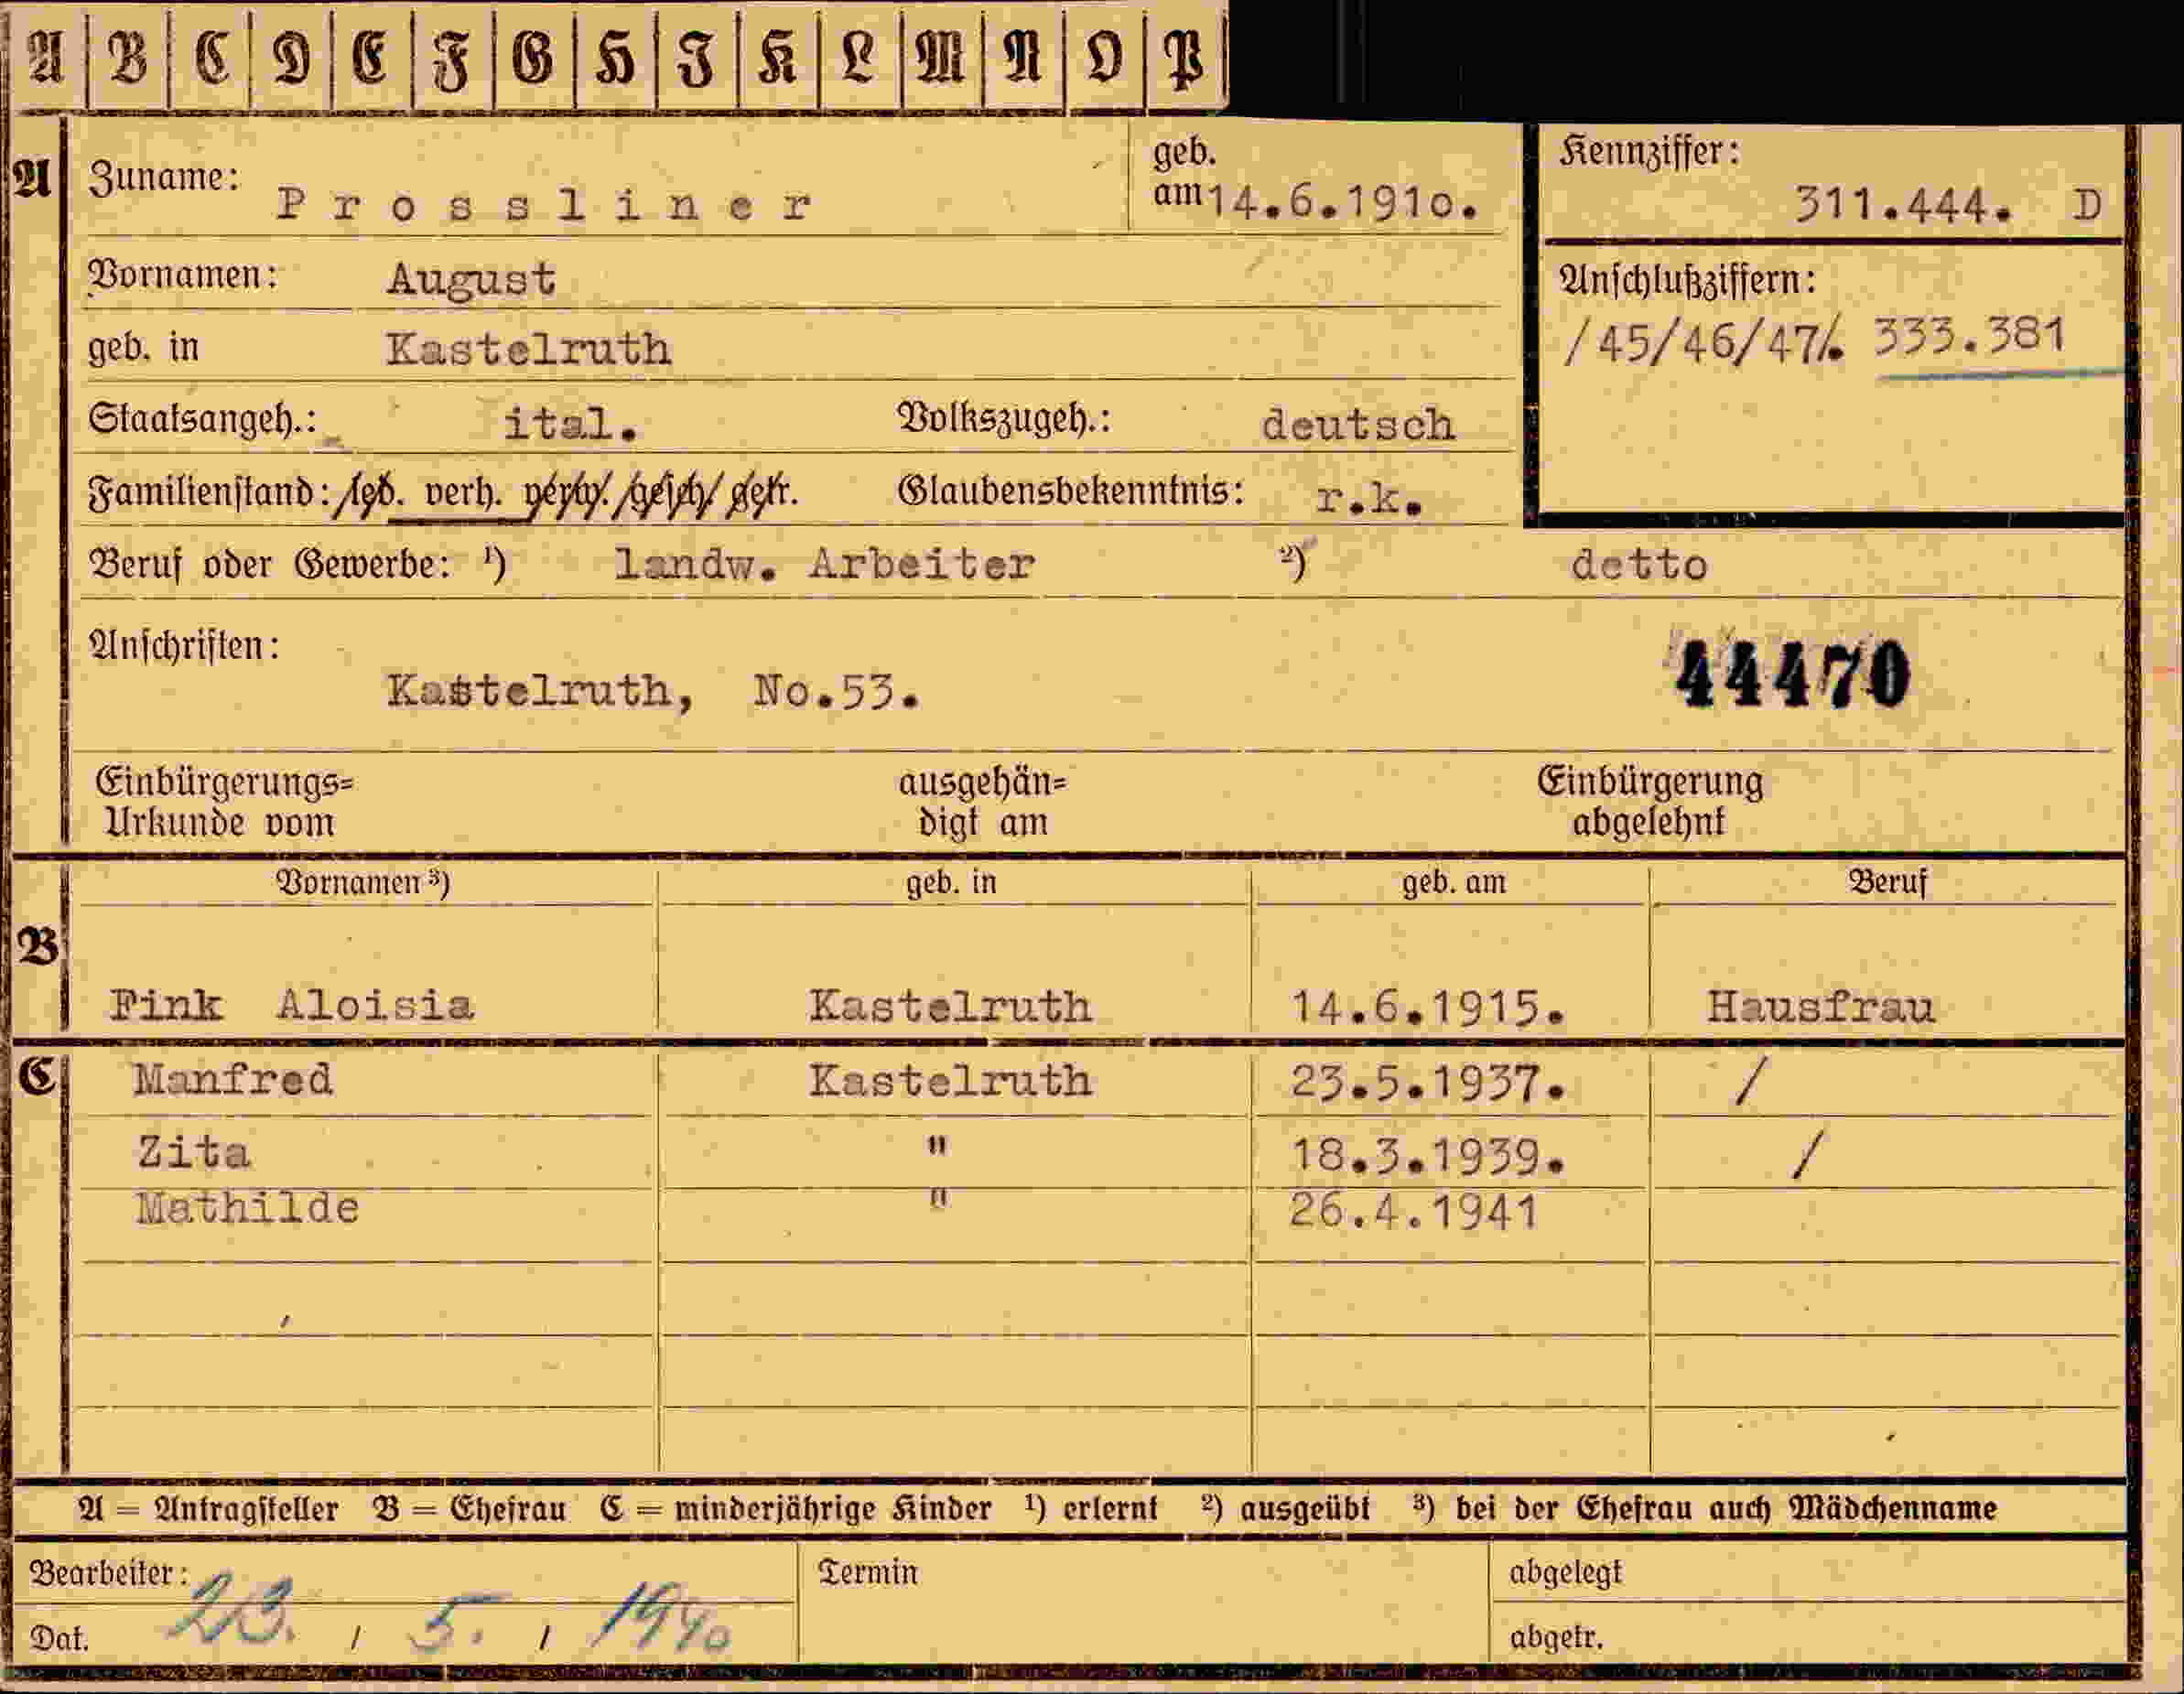 A B C D E F G H I K L M N O P
A Zuname: Prossliner geb. am 14.6.1910. Kennziffer: 311.444. D
Vornamen: August
geb. in Kastelruth
Anschlußziffern:
/45/46/47/. 333.381
Staatsangeh.: ital. Volkszugeh.: deutsch
Familienstand: led. verh. verw. gesch. getr. Glaubensbekenntnis: r.k.
Beruf oder Gewerbe: ¹) landw. Arbeiter ²) detto
Anschriften:
Kastelruth, No.53.
44470
Einbürgerungs= ausgehän= Einbürgerung
Urkunde vom digt am abgelehnt
Vornamen ³) geb. in geb. am Beruf
B
Fink Aloisia Kastelruth 14.6.1915. Hausfrau
C Manfred Kastelruth 23.5.1937. /
Zita " 18.3.1939. /
Mathilde " 26.4.1941
A = Antragsteller B = Ehefrau C = minderjährige Kinder ¹) erlernt ²) ausgeübt ³) bei der Ehefrau auch Mädchenname
Bearbeiter: Termin abgelegt
Dat. 23. / 5. / 1940 abgetr.